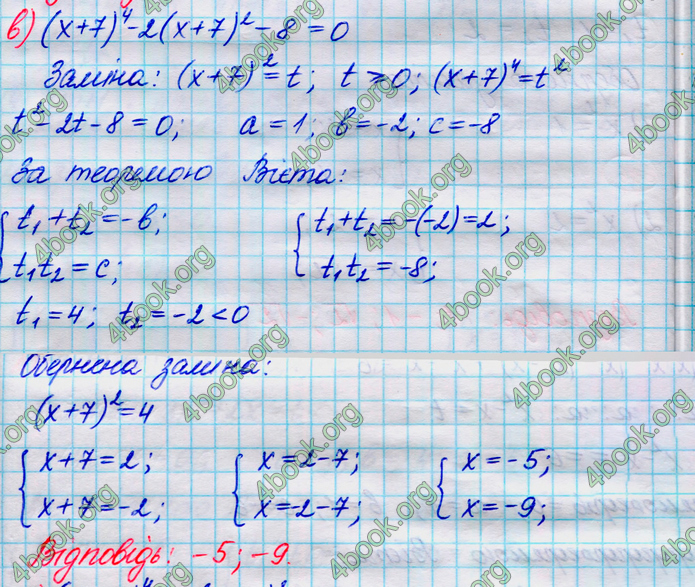 в) (x+7)⁴-2(x+7)²-8=0
Заміна: (x+7)²=t; t≥0; (x+7)⁴=t²
t²-2t-8=0; a=1; в=-2; c=-8
За теоремою Вієта:
{ t₁+t₂=-в; { t₁+t₂=-(-2)=2;
t₁t₂=c; t₁t₂=-8;
t₁=4; t₂=-2<0
Обернена заміна:
(x+7)²=4
{ x+7=2; { x=2-7; { x=-5;
x+7=-2; x=-2-7; x=-9;
Відповідь: -5; -9.
4book.org